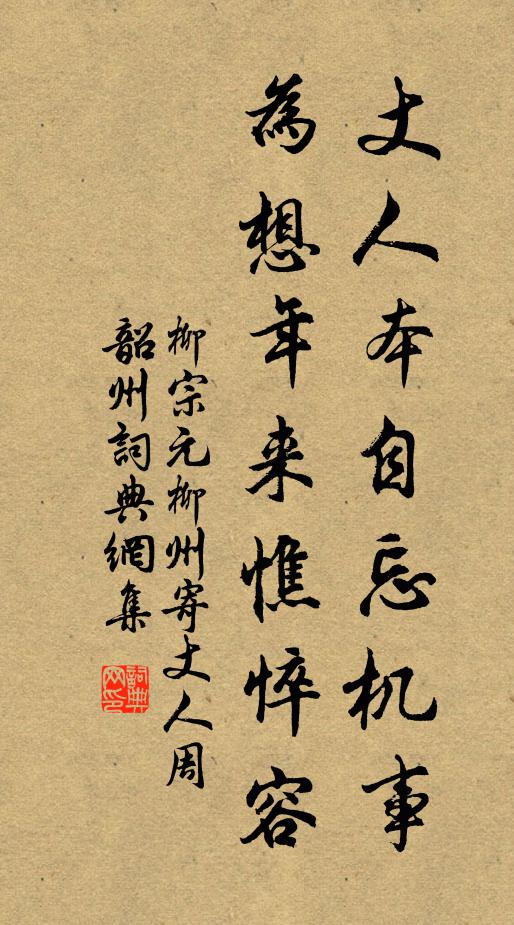 丈人本自忘机事
為想年来憔悴容
柳宗元柳州寄丈人周
韶州詞典網集
詞典网印